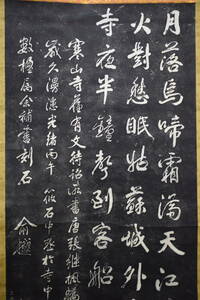 月落烏啼霜滿天江
火對愁眠姑蘇城外
寺夜半鐘聲到客船
寒山寺舊有文待詔所書唐張繼楓橋
歲久漫漶光緒丙午筱石中丞於寺中
數楹屬余補書刻石 俞樾